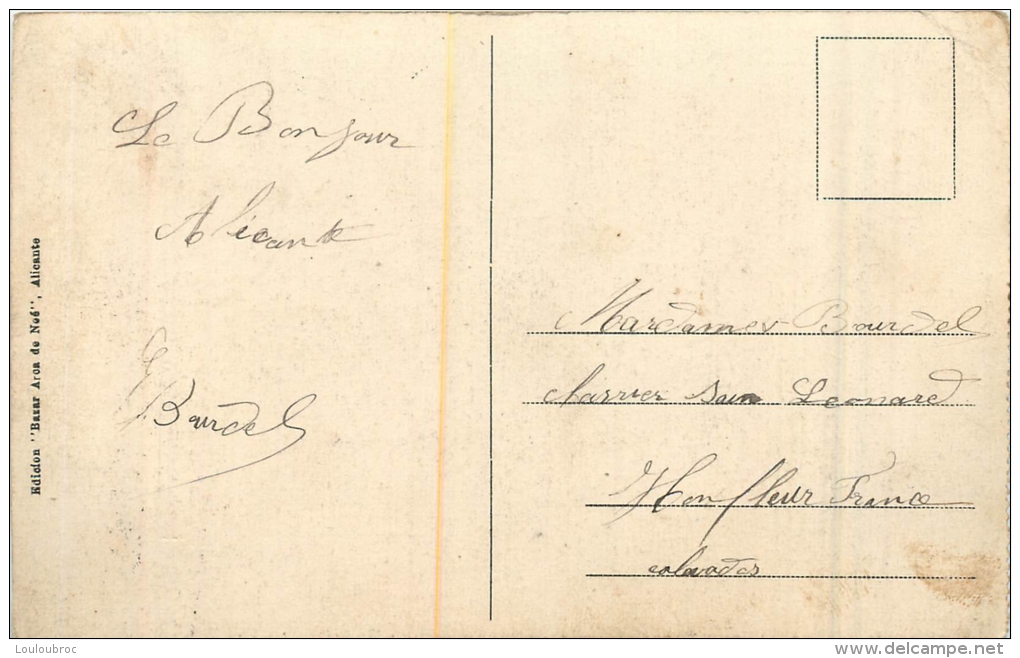 Le Bonjour
Alicante
G Bourdel
Edicion "Bazar Arca de Noé", Alicante
Mardames Bourdel
charrier sain Leonard
Honfleur France
calvados
Louloubroc
www.delcampe.net